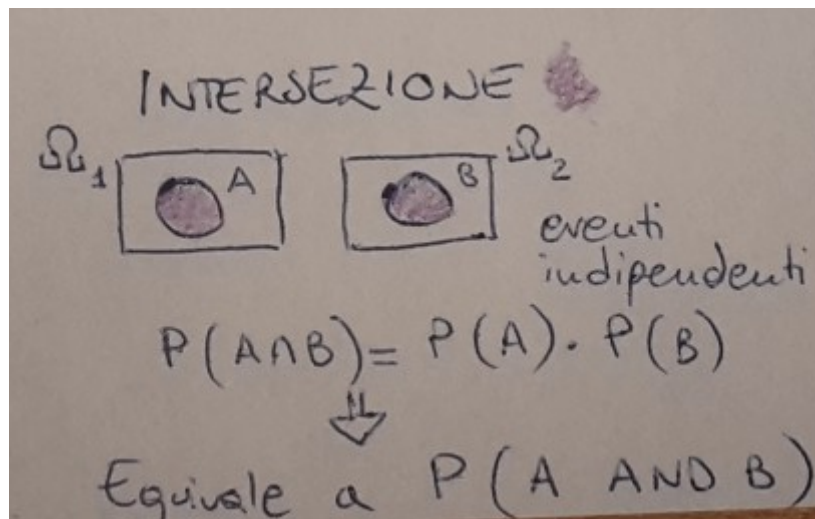 INTERSEZIONE
Ω1 A B Ω2
eventi
indipendenti
P(A∩B) = P(A). P(B)
⇓
Equivale a P(A AND B)